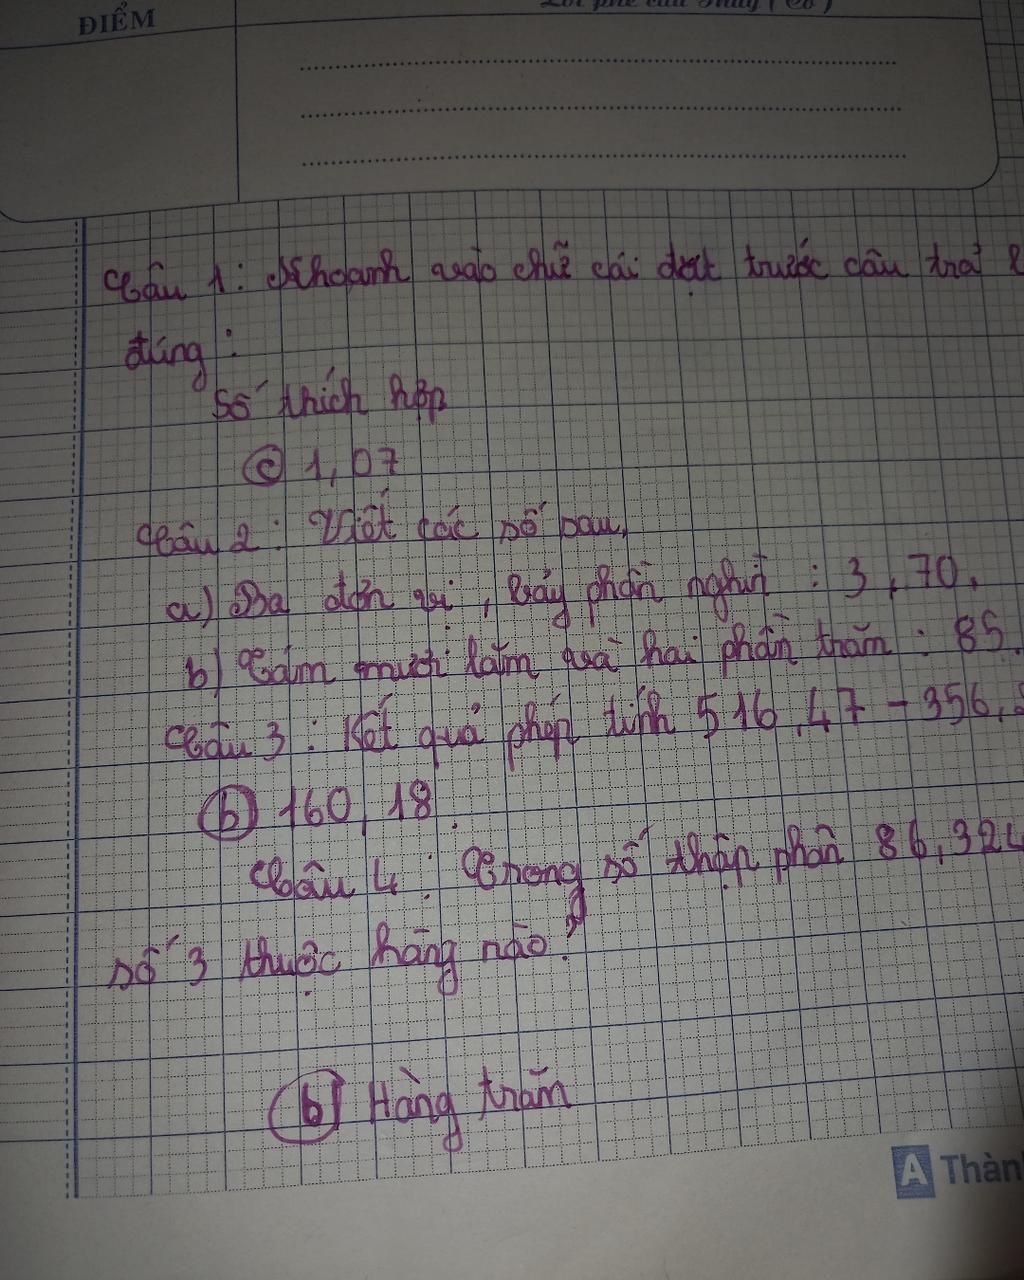 ĐIỂM
Lời phê của Thầy (Cô)
Câu 1: Khoanh vào chữ cái đặt trước câu trả
đúng:
Số thích hợp
c 1,07
Câu 2: Viết các số sau,
a) Ba đơn vị, bảy phần nghìn: 3,70.
b) Tám mươi lăm và hai phần trăm: 85.
Câu 3: Kết quả phép tính 516,47 - 356,
b 160,18.
Câu 4: Trong số thập phân 86,324
số 3 thuộc hàng nào?
b Hàng trăm
A Thành